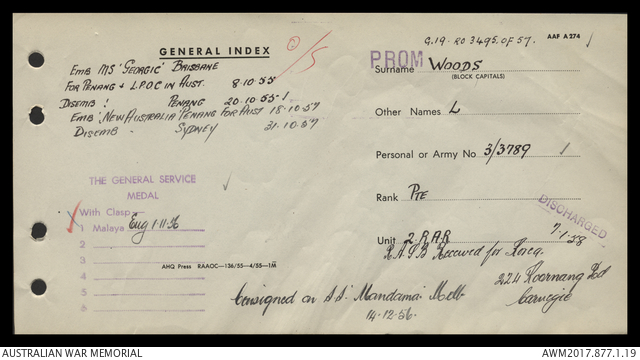 G.19. RO 3495 OF 57.
AAF A 274
GENERAL INDEX
EMB MS 'GEORGIC' BRISBANE
FOR PENANG & L.P.O.C IN AUST. 8.10.55
DISEMB: PENANG 20.10.55
EMB: NEW AUSTRALIA PENANG FOR AUST 18.10.57
DISEMB - SYDNEY 31.10.57
PROM
Surname WOODS
(BLOCK CAPITALS)
Other Names L
Personal or Army No 3/3789
Rank PTE
Unit 2 RAR
DISCHARGED
7.1.58
THE GENERAL SERVICE
MEDAL
With Clasp:—
1 Malaya Enq 1.11.56
2
3
4
5
6
AHQ Press RAAOC—136/55—4/55—1M
R.A.S.B Received for
224 Koornang Rd
Carnegie
Consigned on S.S. Mandama Melb
14.12.56.
AUSTRALIAN WAR MEMORIAL
AWM2017.877.1.19